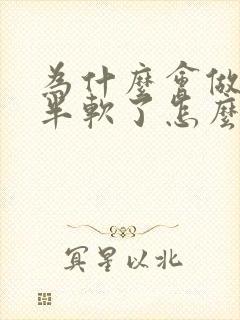 為什麼會做
半軟了怎麼
冥星以北